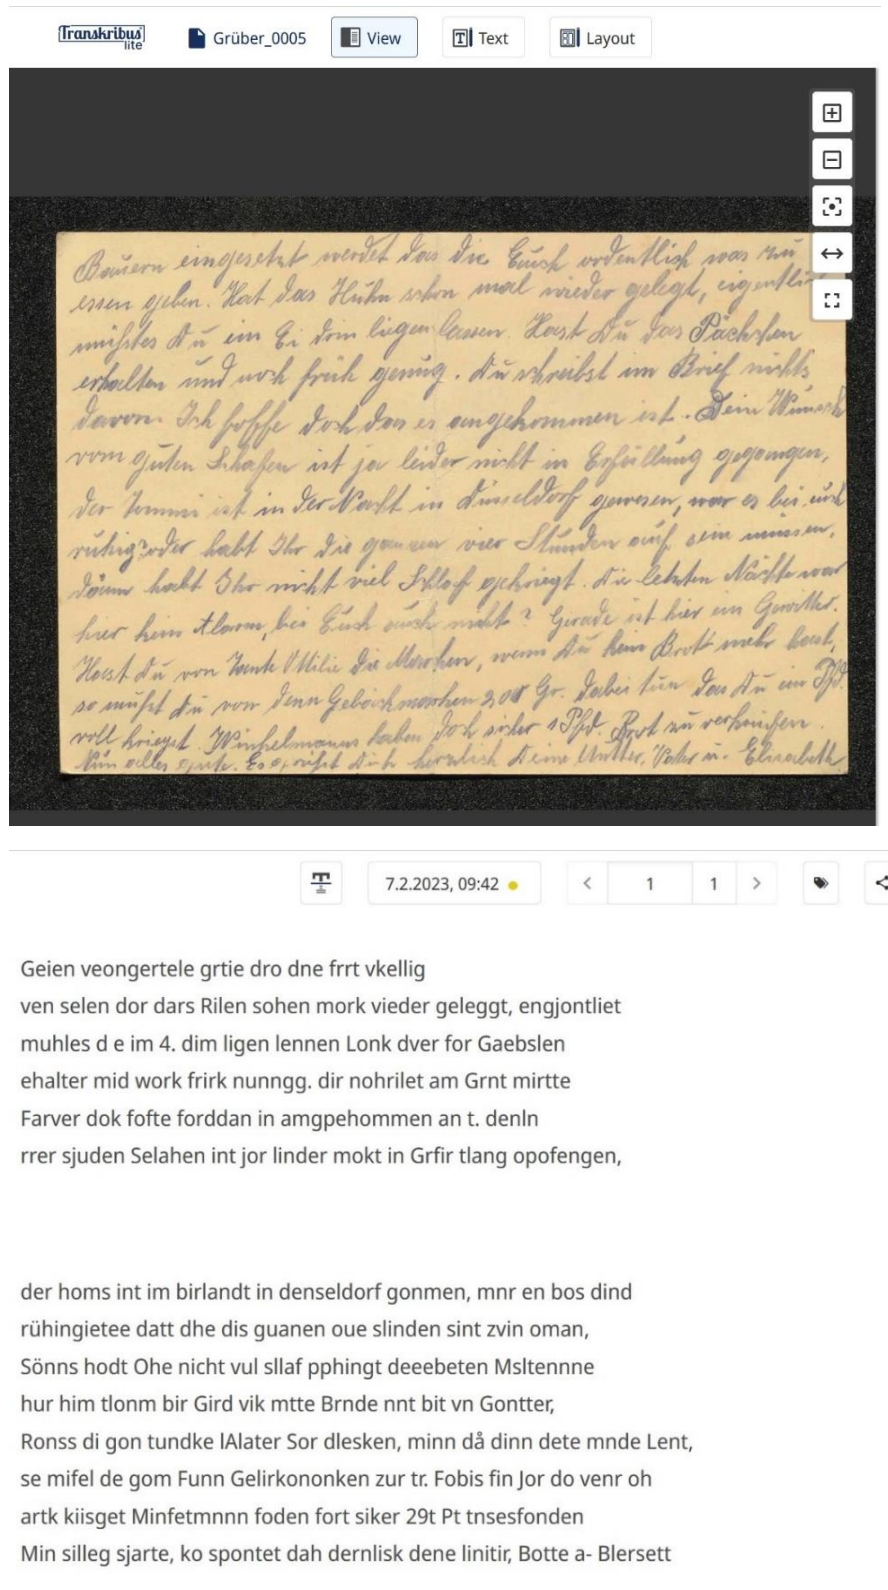 Transkribus
lite
Grüber_0005
View
Text
Layout
Bauern eingesetzt werdet das die Euch ordentlich was zu
essen geben. Hat das Huhn schon mal wieder gelegt, eigentli
müßtes Du ein Ei drin liegen lassen. Hast Du das Päckchen
erhalten und noch früh genug. Du schreibst im Brief nichts
davon. Ich hoffe doch das es angekommen ist. Dein Wunsch
vom guten Schlafen ist ja leider nicht in Erfüllung gegangen,
der Tommi ist in der Nacht in Düsseldorf gewesen, war es bei euch
ruhig? oder habt Ihr die ganzen vier Stunden auf sein müssen,
dann habt Ihr nicht viel Schlaf gekriegt. Die letzten Nächte war
hier kein Alarm, bei Euch auch nicht? Gerade ist hier ein Gewitter.
Hast Du von Tante Ottilie die Marken, wenn Du kein Brot mehr hast,
so mußt Du von denn Gebäckmarken 200 Gr. dabei tun das Du ein Pfd.
voll kriegst. Winkelmanns haben doch sicher 1 Pfd. Brot zu verkaufen.
Nun alles gute. Es grüßt Dich herzlich Deine Mutter, Vater u. Elisabeth
7.2.2023, 09:42
1
1
Geien veongertele grtie dro dne frrt vkellig
ven selen dor dars Rilen sohen mork vieder geleggt, engjontliet
muhles d e im 4. dim ligen lennen Lonk dver for Gaebslen
ehalter mid work frirk nunngg. dir nohrilet am Grnt mirtte
Farver dok fofte forddan in amgpehommen an t. denln
rrer sjuden Selahen int jor linder mokt in Grfir tlang opofengen,
der homs int im birlandt in denseldorf gonmen, mnr en bos dind
rühingietee datt dhe dis guanen oue slinden sint zvin oman,
Sönns hodt Ohe nicht vul sllaf pphingt deeebeten Msltennne
hur him tlonm bir Gird vik mtte Brnde nnt bit vn Gontter,
Ronss di gon tundke lAlater Sor dlesken, minn då dinn dete mnde Lent,
se mifel de gom Funn Gelirkononken zur tr. Fobis fin Jor do venr oh
artk kiisget Minfetmnnn foden fort siker 29t Pt tnsesfonden
Min silleg sjarte, ko spontet dah dernlisk dene linitir, Botte a- Blersett